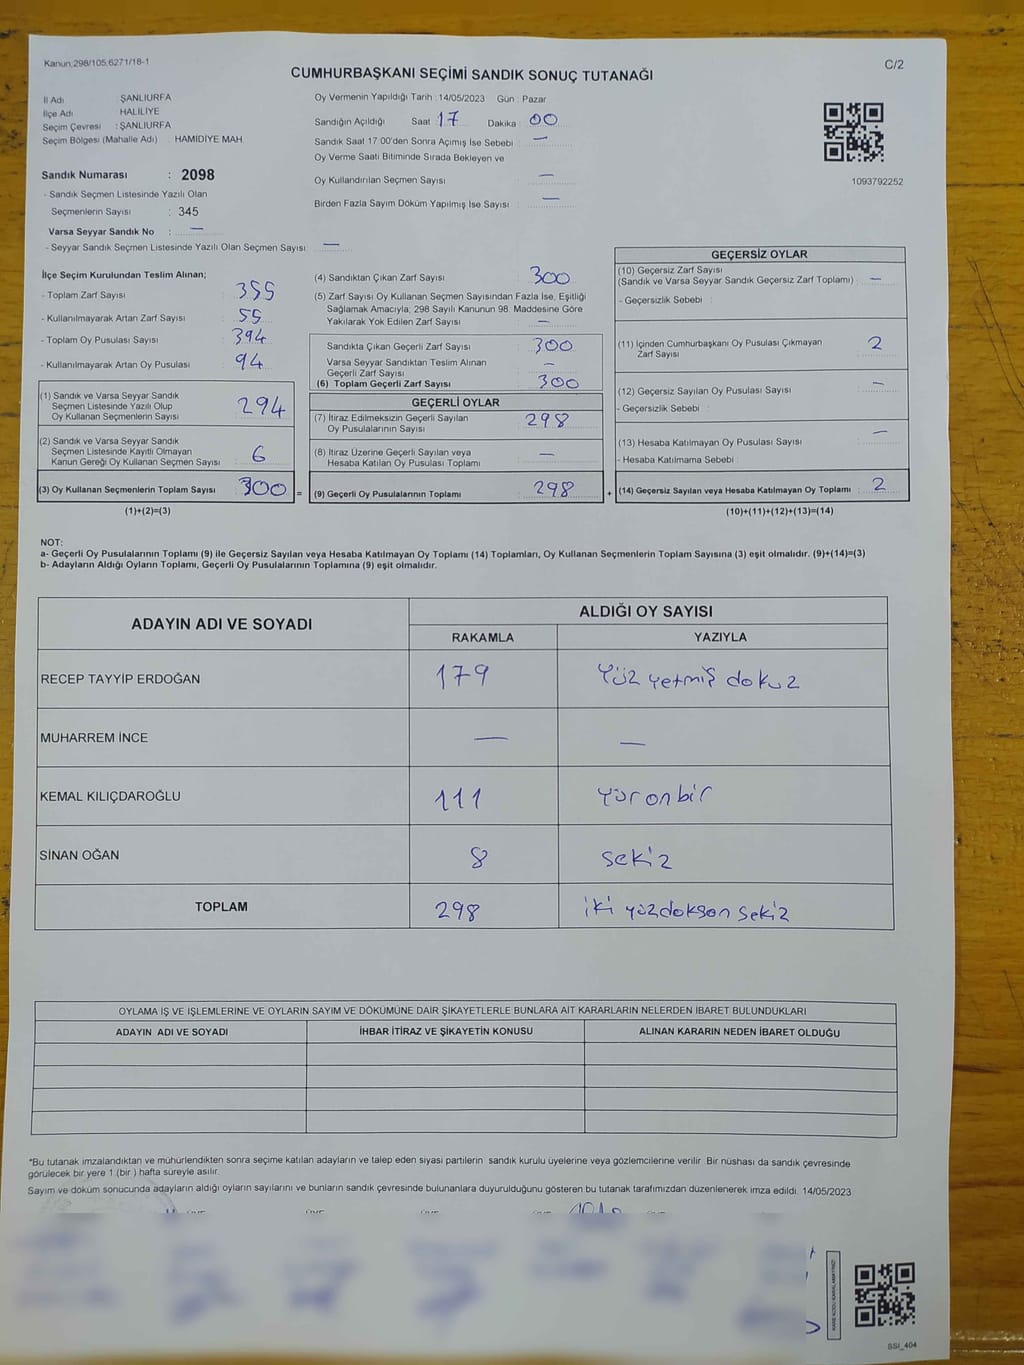 Kanun;298/105,6271/18-1
C/2
CUMHURBAŞKANI SEÇİMİ SANDIK SONUÇ TUTANAĞI
İl Adı : ŞANLIURFA
İlçe Adı : HALİLİYE
Seçim Çevresi : ŞANLIURFA
Seçim Bölgesi (Mahalle Adı) : HAMİDİYE MAH.
Sandık Numarası : 2098
- Sandık Seçmen Listesinde Yazılı Olan
Seçmenlerin Sayısı : 345
Varsa Seyyar Sandık No : —
- Seyyar Sandık Seçmen Listesinde Yazılı Olan Seçmen Sayısı: —
Oy Vermenin Yapıldığı Tarih : 14/05/2023 Gün : Pazar
Sandığın Açıldığı Saat : 17 Dakika : 00
Sandık Saat 17:00'den Sonra Açımış İse Sebebi : —
Oy Verme Saati Bitiminde Sırada Bekleyen ve
Oy Kullandırılan Seçmen Sayısı : —
Birden Fazla Sayım Döküm Yapılmış İse Sayısı : —
1093792252
İlçe Seçim Kurulundan Teslim Alınan;
- Toplam Zarf Sayısı : 355
- Kullanılmayarak Artan Zarf Sayısı : 55
- Toplam Oy Pusulası Sayısı : 394
- Kullanılmayarak Artan Oy Pusulası : 94
(1) Sandık ve Varsa Seyyar Sandık
Seçmen Listesinde Yazılı Olup
Oy Kullanan Seçmenlerin Sayısı : 294
(2) Sandık ve Varsa Seyyar Sandık
Seçmen Listesinde Kayıtlı Olmayan
Kanun Gereği Oy Kullanan Seçmen Sayısı : 6
(3) Oy Kullanan Seçmenlerin Toplam Sayısı : 300 =
(1)+(2)=(3)
(4) Sandıktan Çıkan Zarf Sayısı : 300
(5) Zarf Sayısı Oy Kullanan Seçmen Sayısından Fazla İse, Eşitliği
Sağlamak Amacıyla; 298 Sayılı Kanunun 98. Maddesine Göre
Yakılarak Yok Edilen Zarf Sayısı : —
Sandıkta Çıkan Geçerli Zarf Sayısı : 300
Varsa Seyyar Sandıktan Teslim Alınan
Geçerli Zarf Sayısı : —
(6) Toplam Geçerli Zarf Sayısı : 300
GEÇERLİ OYLAR
(7) İtiraz Edilmeksizin Geçerli Sayılan
Oy Pusulalarının Sayısı : 298
(8) İtiraz Üzerine Geçerli Sayılan veya
Hesaba Katılan Oy Pusulası Toplamı : —
(9) Geçerli Oy Pusulalarının Toplamı : 298 +
GEÇERSİZ OYLAR
(10) Geçersiz Zarf Sayısı
(Sandık ve Varsa Seyyar Sandık Geçersiz Zarf Toplamı) : —
- Geçersizlik Sebebi :
(11) İçinden Cumhurbaşkanı Oy Pusulası Çıkmayan
Zarf Sayısı : 2
(12) Geçersiz Sayılan Oy Pusulası Sayısı : —
- Geçersizlik Sebebi :
(13) Hesaba Katılmayan Oy Pusulası Sayısı : —
- Hesaba Katılmama Sebebi :
(14) Geçersiz Sayılan veya Hesaba Katılmayan Oy Toplamı : 2
(10)+(11)+(12)+(13)=(14)
NOT:
a- Geçerli Oy Pusulalarının Toplamı (9) ile Geçersiz Sayılan veya Hesaba Katılmayan Oy Toplamı (14) Toplamları, Oy Kullanan Seçmenlerin Toplam Sayısına (3) eşit olmalıdır. (9)+(14)=(3)
b- Adayların Aldığı Oyların Toplamı, Geçerli Oy Pusulalarının Toplamına (9) eşit olmalıdır.
ADAYIN ADI VE SOYADI
ALDIĞI OY SAYISI
RAKAMLA YAZIYLA
RECEP TAYYİP ERDOĞAN 179 Yüz yetmiş dokuz
MUHARREM İNCE — —
KEMAL KILIÇDAROĞLU 111 yüz onbir
SİNAN OĞAN 8 sekiz
TOPLAM 298 iki yüzdoksan sekiz
OYLAMA İŞ VE İŞLEMLERİNE VE OYLARIN SAYIM VE DÖKÜMÜNE DAİR ŞİKAYETLERLE BUNLARA AİT KARARLARIN NELERDEN İBARET BULUNDUKLARI
ADAYIN ADI VE SOYADI İHBAR İTİRAZ VE ŞİKAYETİN KONUSU ALINAN KARARIN NEDEN İBARET OLDUĞU
*Bu tutanak imzalandıktan ve mühürlendikten sonra seçime katılan adayların ve talep eden siyasi partilerin sandık kurulu üyelerine veya gözlemcilerine verilir. Bir nüshası da sandık çevresinde
görülecek bir yere 1 (bir ) hafta süreyle asılır.
Sayım ve döküm sonucunda adayların aldığı oyların sayılarını ve bunların sandık çevresinde bulunanlara duyurulduğunu gösteren bu tutanak tarafımızdan düzenlenerek imza edildi. 14/05/2023
SSI_404